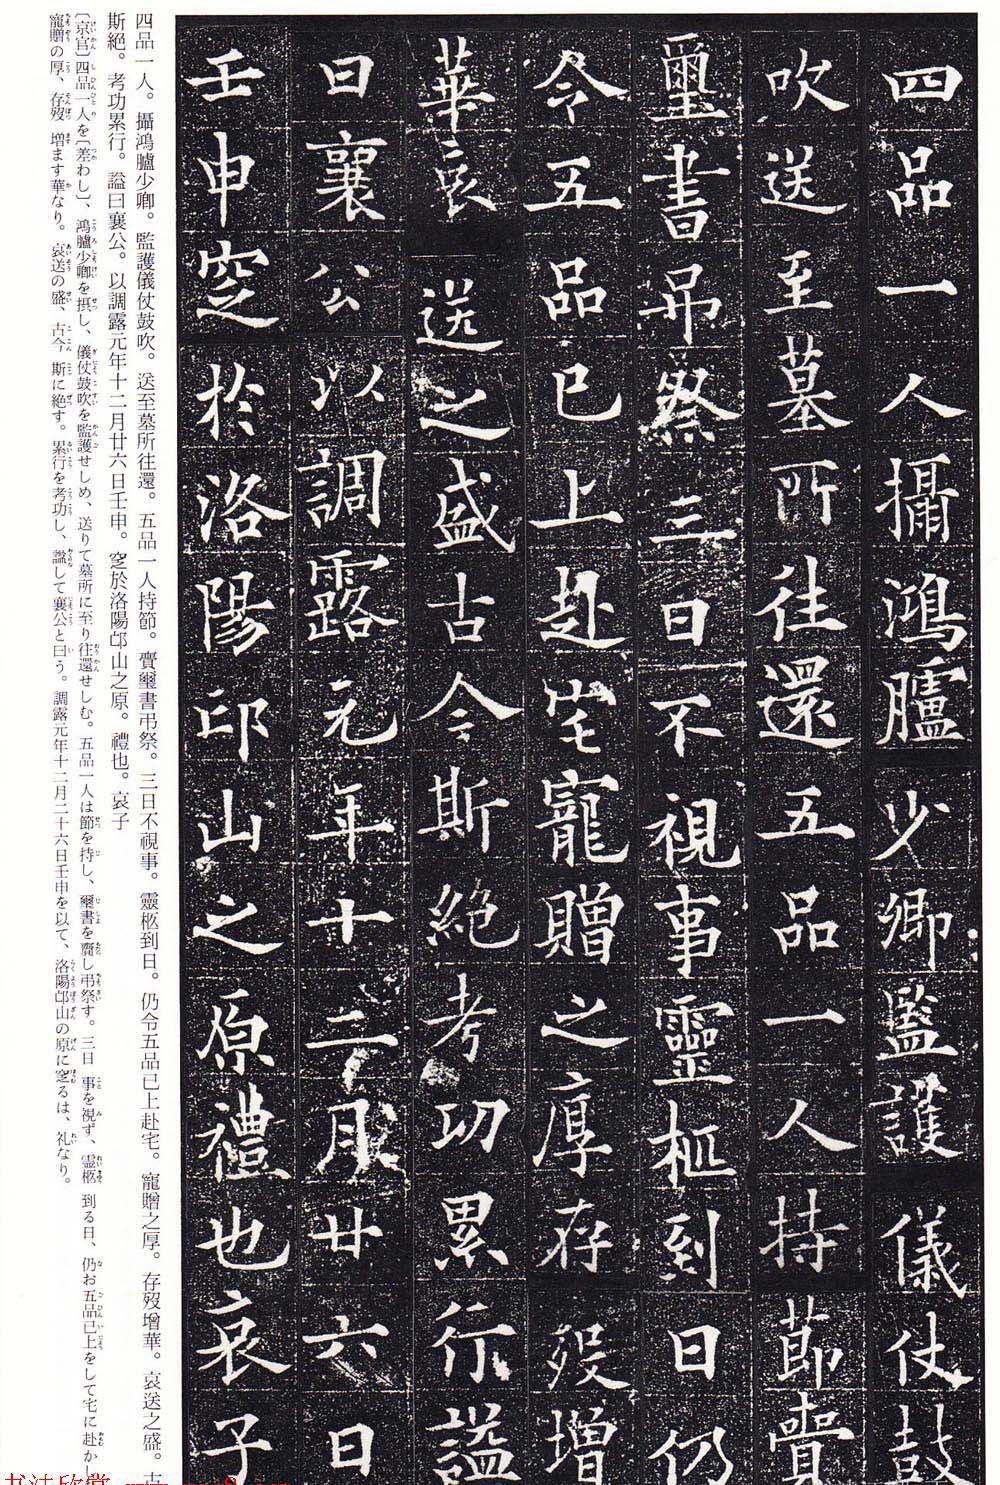 四品一人攝鴻臚少卿監護儀仗鼓
吹送至墓所往還五品一人持節賷
璽書弔祭三日不視事靈柩到日仍
令五品已上赴宅寵贈之厚存歿增
華哀送之盛古今斯絕考功累行謚
曰襄公以調露元年十二月廿六日
壬申窆於洛陽邙山之原禮也哀子
四品一人。攝鴻臚少卿。監護儀仗鼓吹。送至墓所往還。五品一人持節。賷璽書弔祭。三日不視事。靈柩到日。仍令五品已上赴宅。寵贈之厚。存歿增華。哀送之盛。古
斯絕。考功累行。謚曰襄公。以調露元年十二月廿六日壬申。窆於洛陽邙山之原。禮也。哀子
〔京官〕四品一人を〔差わし〕、鴻臚少卿を摂し、儀仗鼓吹を監護せしめ、送りて墓所に至り往還せしむ。五品一人は節を持し、璽書を賷し弔祭す。三日 事を視ず、霊柩 到る日、仍お五品已上をして宅に赴かし
寵贈の厚、存歿 増ます華なり。哀送の盛、古今 斯に絶す。累行を考功し、謚して襄公と曰う。調露元年十二月二十六日壬申を以て、洛陽邙山の原に窆るは、礼なり。
书法欣赏